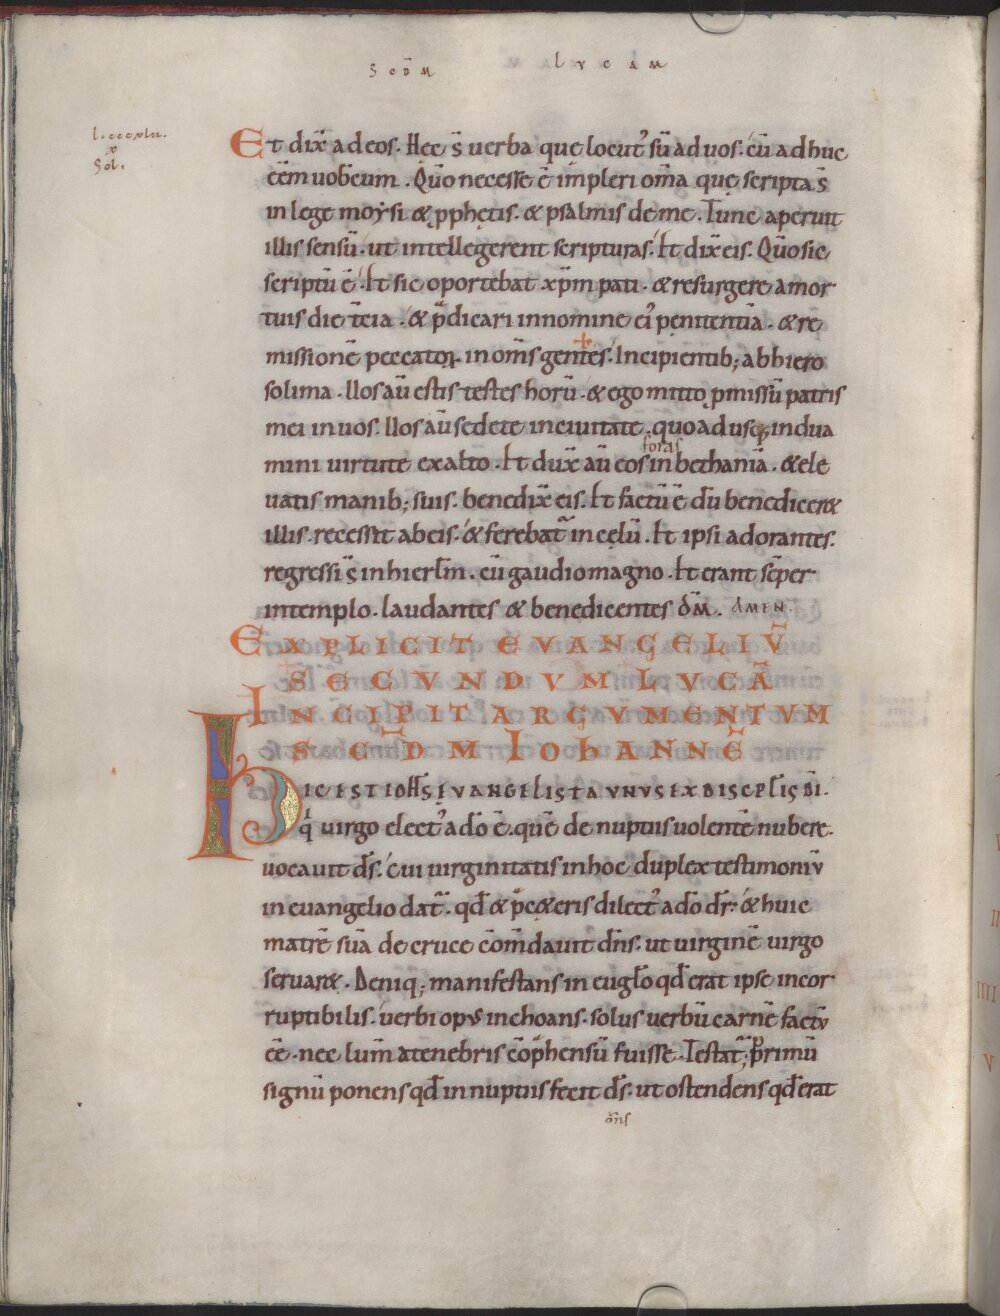 Scďm lvcam
l. cccxlii.
x
Sol.
Et dix̅ ad eos. Hęc s̅ uerba quę locut᾽ su̅ ad uos. cu̅ adhuc
ee̅m uobcum. Qm̅o necesse e̅ impleri om̅a quę scripta s̅
in lege moysi & ꝓphetis. & psalmis de me. Tunc aperuit
illis sensu̅. ut intellegerent scripturas. Et dix̅ eis. Qm̅o sic
scriptu̅ e̅. Et sic oportebat xp̅m pati. & resurgere a mor
tuis die te̅ia. & p̅dicari in nomine ei᾽ penitentia̅. & re
missione̅ peccatoꝝ. in om̅s gentes. Incipientib; ab hiero
solima. Uos au̅ estis testes horu̅. & ego mitto ꝓmissu̅ patris
mei in uos. Uos au̅ sedete in ciuitate. quoadusq; indua
mini uirtute ex alto. Et dux̅ au̅ eos foras in bethania̅. & ele
uatis manib; suis. benedix̅ eis. Et factu̅ e̅ du̅ benedicer&
illis. recessit ab eis. & ferebat᷑ in celu̅. Et ipsi adorantes.
regressi s̅ in hierl̅m. cu̅ gaudio magno. Et erant se̅per
in templo. laudantes & benedicentes dm̅. AMEN.
EXPLICIT EVANGELIV̅
SECVNDVM LVCA̅
INCIPIT ARGVMENTVM
SCD̅M IOhANNE̅
HIC EST IOHS̅ EVANGELISTA VNVS EX DISCPLIS DI̅.
q̅ uirgo elect᾽ a do̅ e̅. que̅ de nuptiis uolente̅ nubere.
uocauit ds̅. cui uirginitatis in hoc duplex testimoniu̅
in euangelio dat᷑. qd̅ & p̅ c&eris dilect᾽ a do̅ dr̅. & huic
matre̅ sua̅ de cruce co̅mdauit dn̅s. ut uirgine̅ uirgo
seruar&. Deniq; manifestans in eugl̅o qd̅ erat ipse incor
ruptibilis. uerbi opus inchoans. solus uerbu̅ carne̅ factu̅
ee̅. nec lum̅ a tenebris co̅p̅hensu̅ fuisse. Testat᷑; primu̅
signu̅ ponens qd̅ in nuptiis fecit ds̅. ut ostendens qd̅ erat
dn̅s